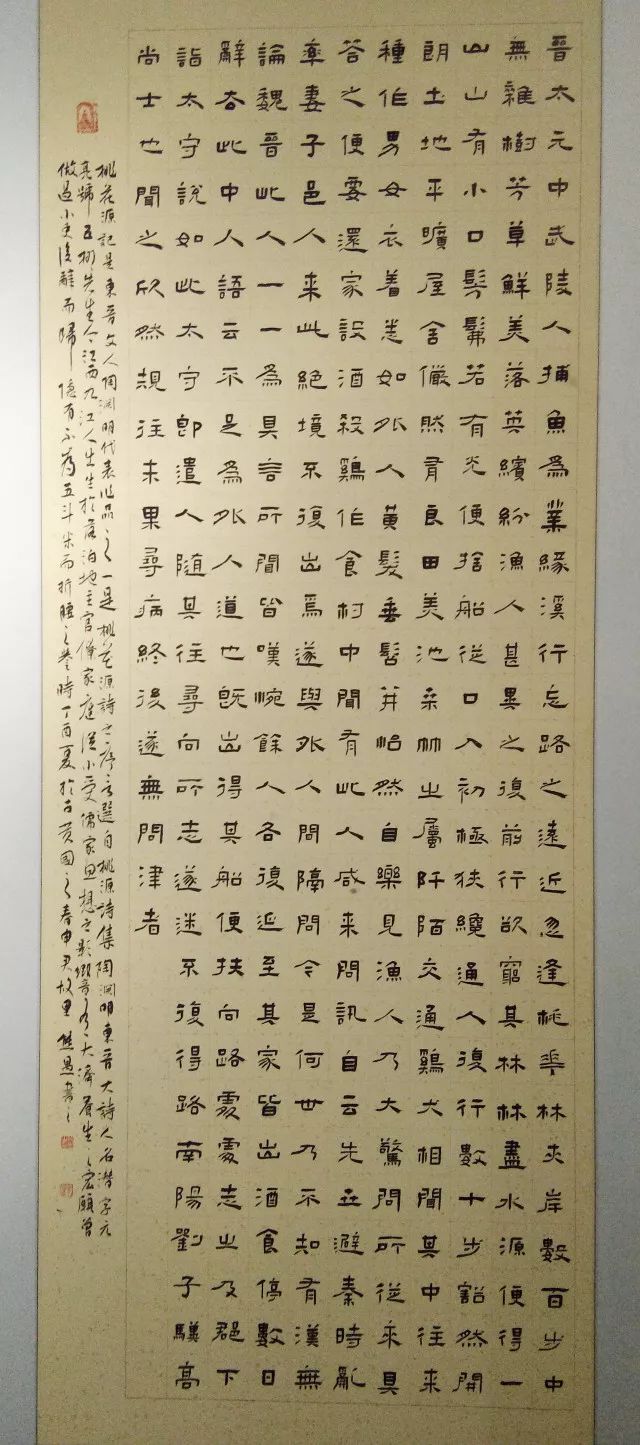 晉太元中武陵人捕魚為業緣溪行忘路之遠近忽逢桃華林夾岸數百步中
無雜樹芳草鮮美落英繽紛漁人甚異之復前行欲窮其林林盡水源便得一
山山有小口髣髴若有光便捨船從口入初極狹纔通人復行數十步豁然開
朗土地平曠屋舍儼然有良田美池桑竹之屬阡陌交通鷄犬相聞其中往來
種作男女衣着悉如外人黃髮垂髫并怡然自樂見漁人乃大驚問所從來具
荅之便要還家設酒殺鷄作食村中聞有此人咸来問訊自云先世避秦時亂
率妻子邑人来此絕境不復出焉遂與外人問隔問今是何世乃不知有漢無
論魏晉此人一一為具言所聞皆嘆惋餘人各復延至其家皆出酒食停數日
辭去此中人語云不足為外人道也既出得其船便扶向路處處志之及郡下
詣太守說如此太守即遣人随其往尋向所志遂迷不復得路南陽劉子驥高
尚士也聞之欣然規往未果尋病終後遂無問津者
桃花源記是東晉文人陶淵明代表作品之一是桃花源詩之序言選自桃源詩集陶淵明東晉大詩人名潜字元
亮號五柳先生今江西九江人出生於落泊地主官僚家庭從小受儒家思想之影響大濟蒼生之宏願曾
做過小吏後辭而歸隱有不為五斗米而折腰之譽時丁酉夏於古黃國之春申君故里熊書之